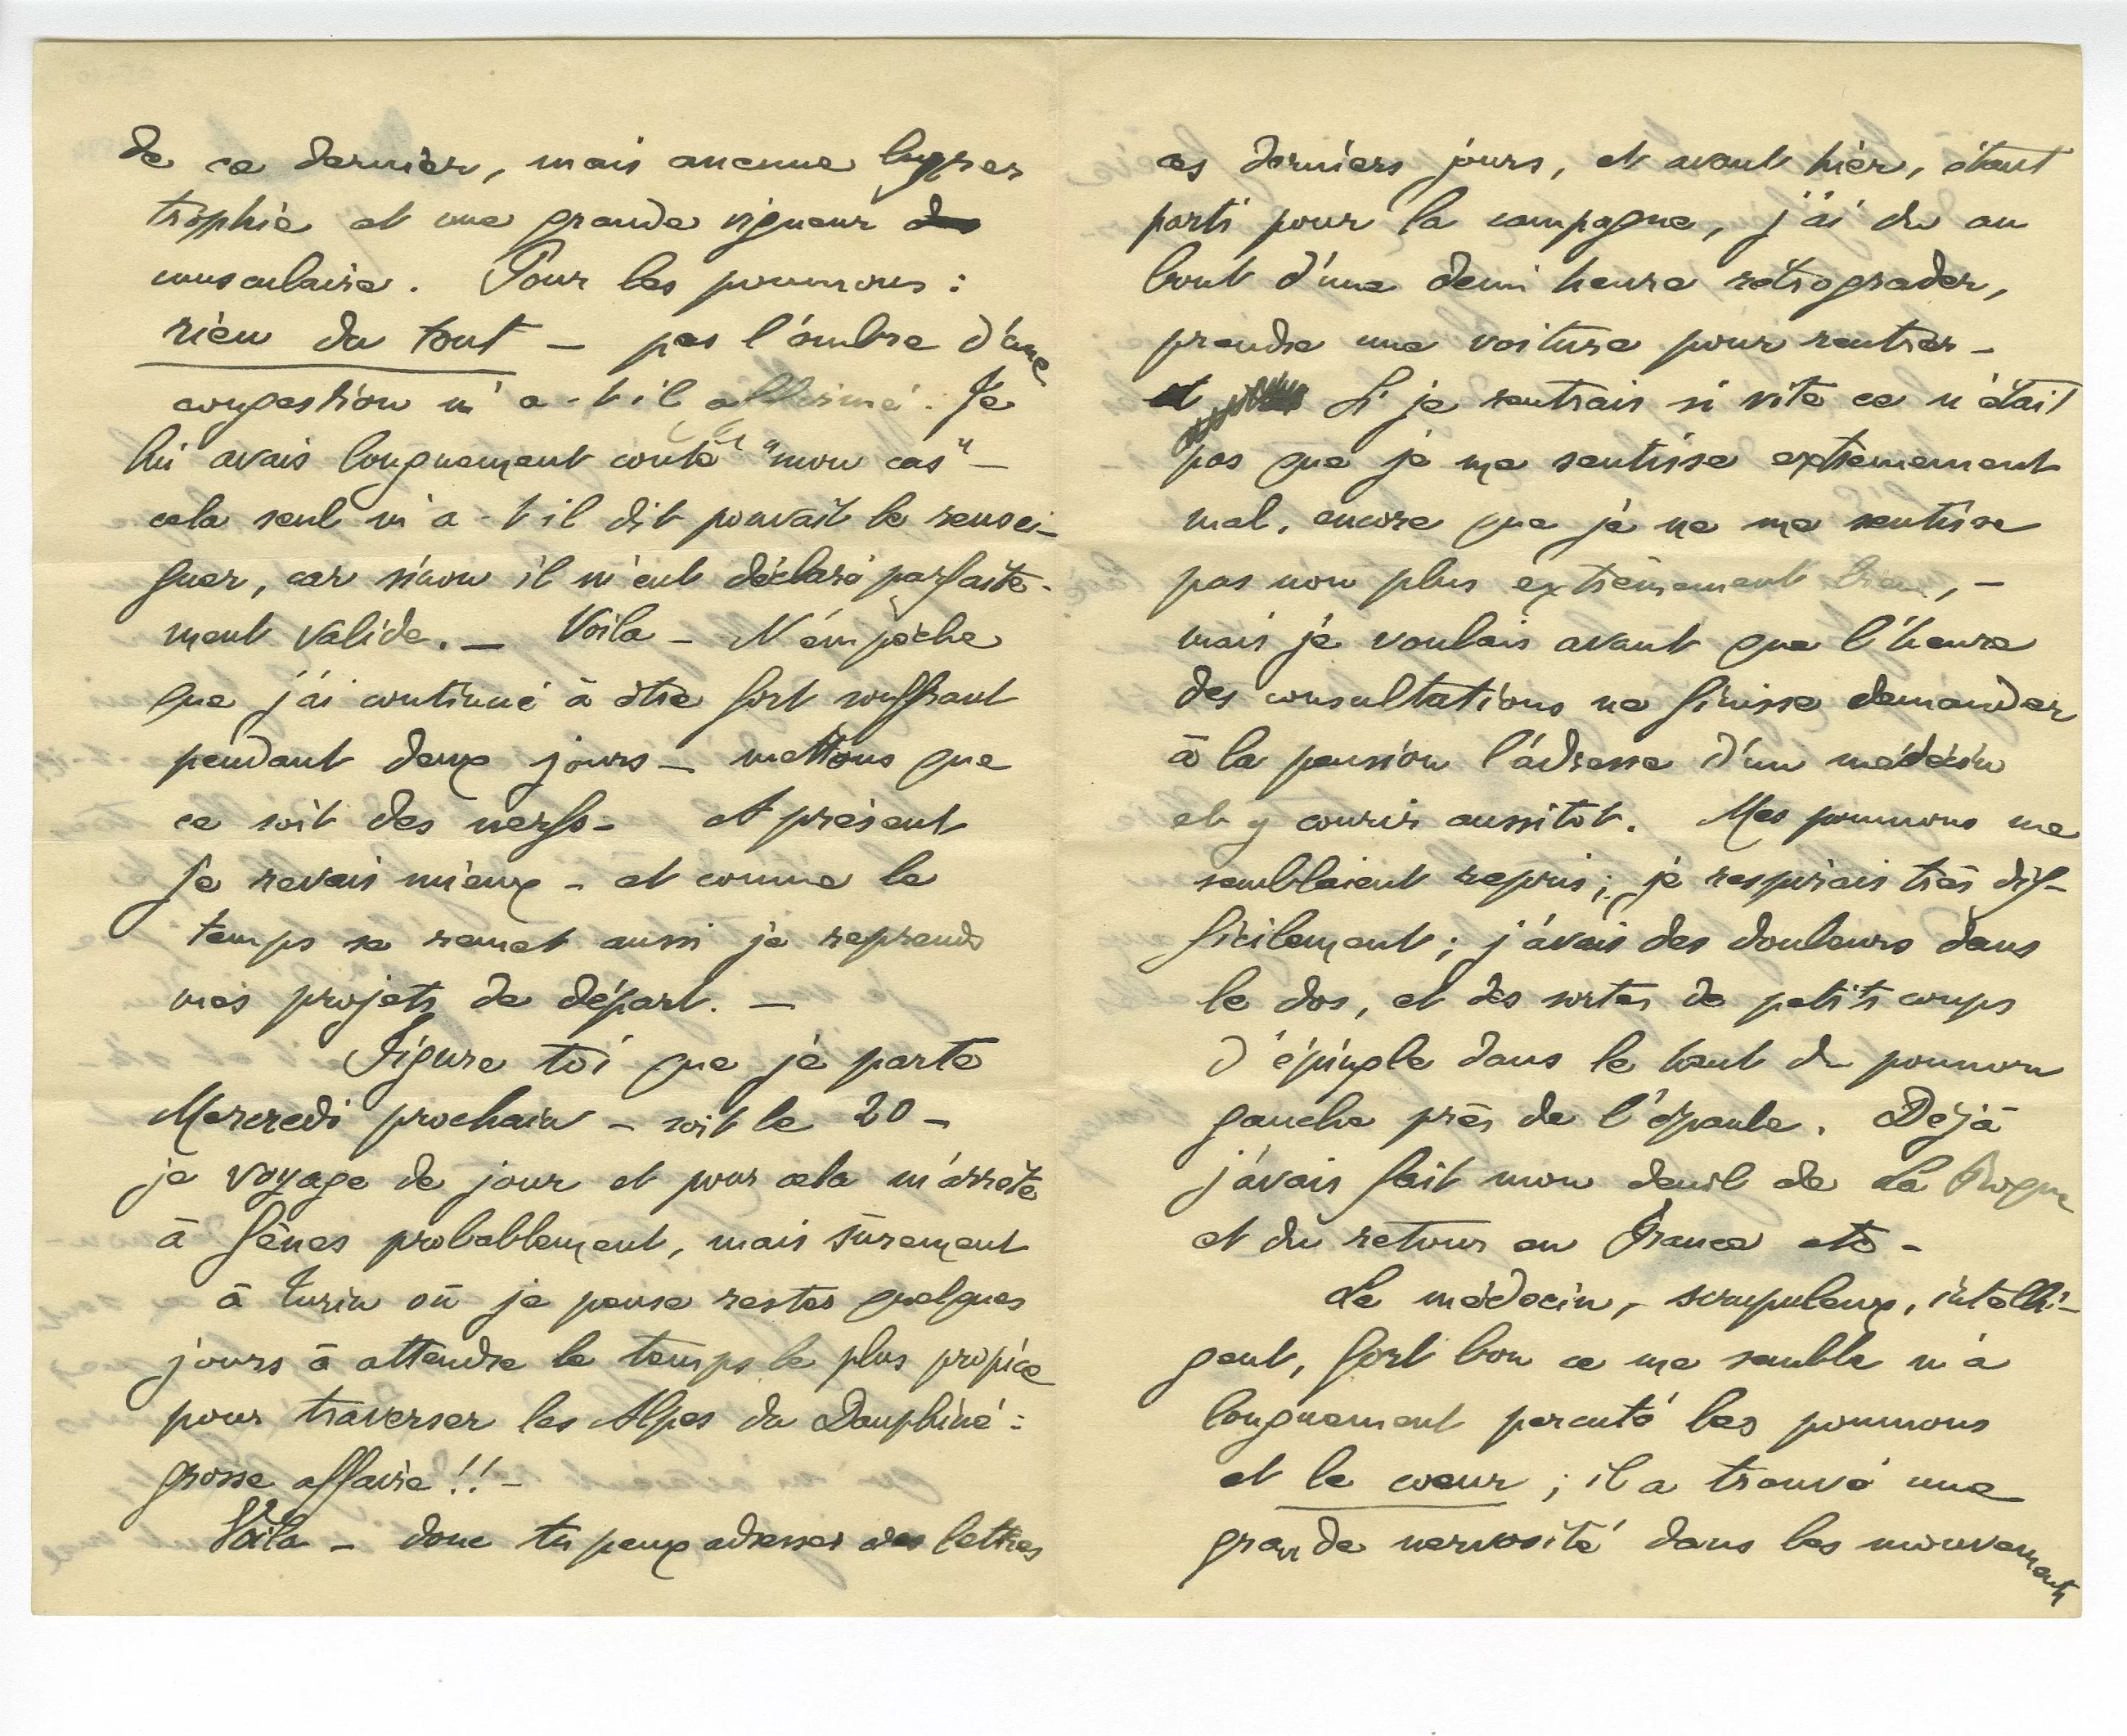 de ce dernier, mais aucune hyper
trophie et une grande vigueur de
musculaire. Pour les poumons :
rien du tout — pas l'ombre d'une
congestion m'a-t-il affirmé. Je
lui avais longuement conté "mon cas" —
cela seul m'a-t-il dit pouvait le rensei-
gner, car sinon il m'eut déclaré parfaite-
ment valide. — Voila — N'empèche
que j'ai continué à être fort souffrant
pendant deux jours — mettons que
ce soit des nerfs — et présent
je revais mieux — et comme le
temps se remet aussi je reprends
mes projets de départ. —
Figure toi que je parte
Mercredi prochain — soit le 20 —
je voyage de jour et pour cela m'arrète
à Gênes probablement, mais sûrement
à Turin où je pense rester quelques
jours à attendre le temps le plus propice
pour traverser les Alpes du Dauphiné :
grosse affaire !! —
Voila — donc tu peux adresser des lettres
ces derniers jours, et avant hier, étant
parti pour la campagne, j'ai du au
bout d'une demi heure rétrograder,
prendre une voiture pour rentrer —
et Si je rentrais si vite ce n'était
pas que je me sentisse extrêmement
mal, encore que je ne me sentisse
pas non plus extrêmement bien, —
mais je voulais avant que l'heure
des consultations ne finisse demander
à la pension l'adresse d'un médecin
et y courir aussitot. Mes poumons me
semblaient repris ; je respirais très dif-
ficilement ; j'avais des douleurs dans
le dos, et des sortes de petits coups
d'épingle dans le haut du poumon
gauche près de l'épaule. Déjà
j'avais fait mon deuil de La Roque
et du retour en France etc —
Le médecin, scrupuleux, intelli-
gent, fort bon ce me semble m'a
longuement percuté les poumons
et le coeur ; il a trouvé une
grande nervosité dans les mouvements